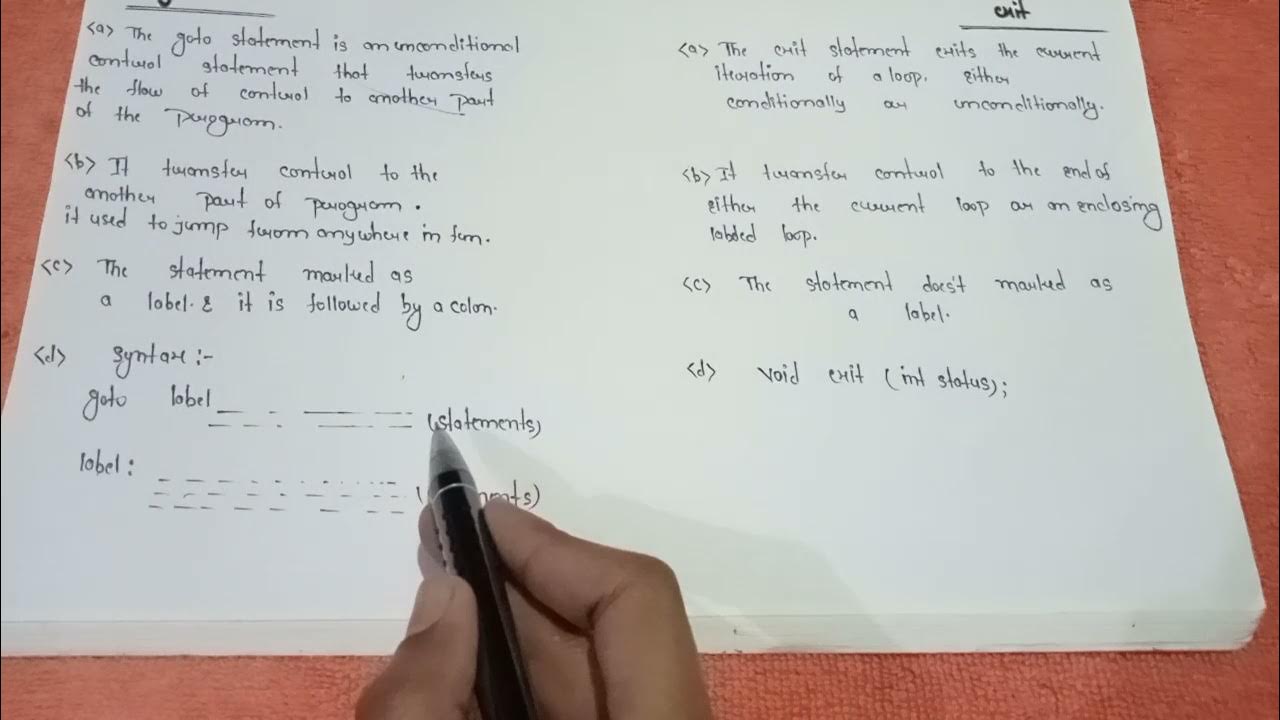 <a> The goto statement is an unconditional
control statement that transfers
the flow of control to another part
of the program.
<b> It transfer control to the
another part of program.
it used to jump from anywhere in fun.
<c> The statement marked as
a label. & it is followed by a colon.
<d> syntax :-
goto label
(statements)
label:
exit
<a> The exit statement exits the current
iteration of a loop. either
conditionally or unconditionally.
<b> It transfer control to the end of
either the current loop or an enclosing
labded loop.
<c> The statement does't marked as
a label.
<d> void exit (int status);